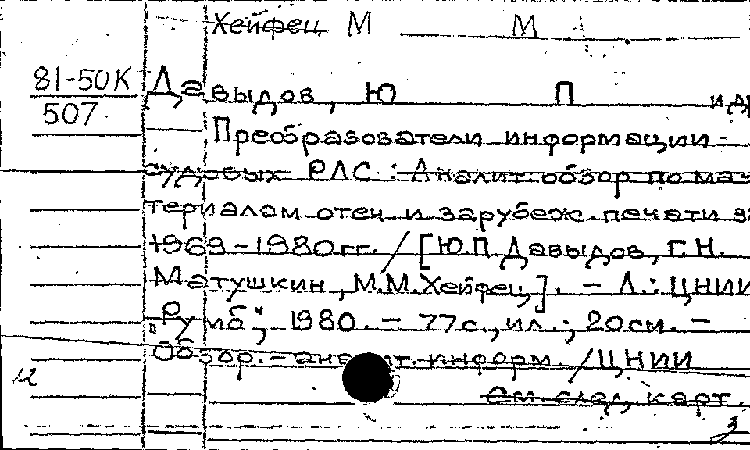 Хейфец М М
81-50К Давыдов, Ю П и др
507
Преобразователи информации
судовых РЛС : Аналит. обзор по ма-
териалам отеч. и зарубеж. печати за
1969-1980 гг. / [Ю.П. Давыдов, Г.Н.
Матушкин, М.М. Хейфец]. - Л.: ЦНИИ
"Румб", 1980. - 77 с., ил.; 20 см. -
Обзор.-аналит. информ. / ЦНИИ
См. след. карт.